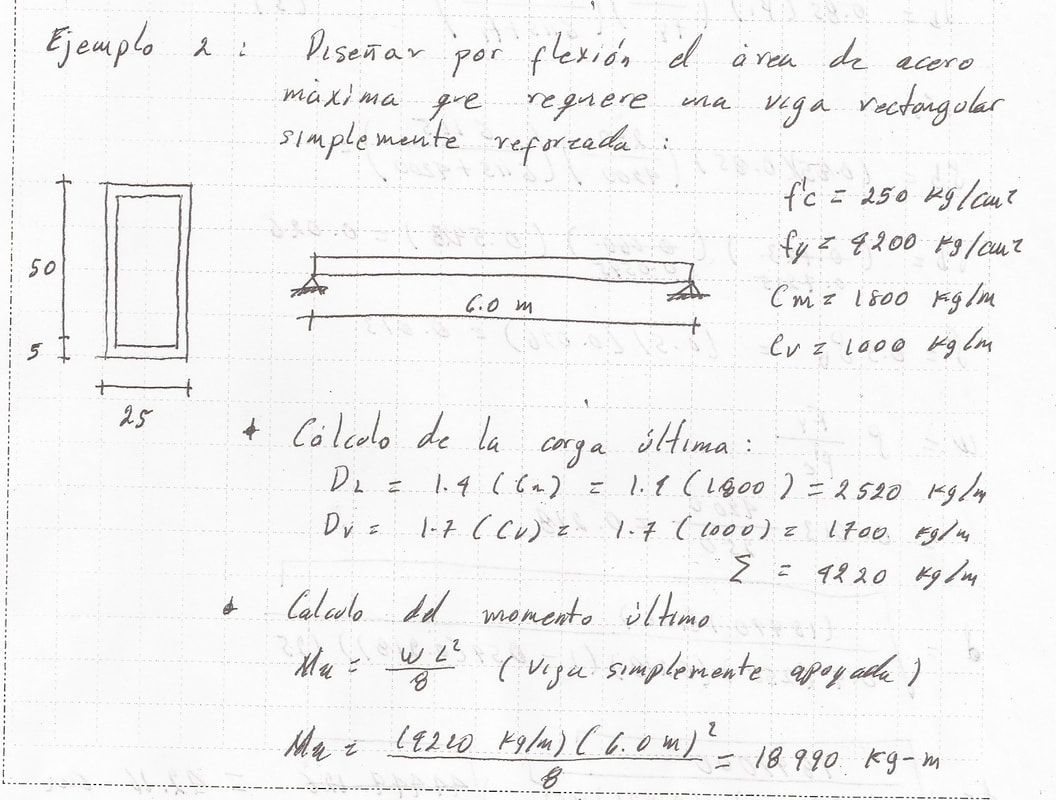 Ejemplo 2 : Diseñar por flexión el área de acero
máxima que requiere una viga rectangular
simplemente reforzada :
f'c = 250 kg/cm²
fy = 4200 kg/cm²
Cm = 1800 kg/m
Cv = 1000 kg/m
50
5
25
6.0 m
Cálculo de la carga última :
DL = 1.4 (Cm) = 1.4 (1800) = 2520 kg/m
Dv = 1.7 (Cv) = 1.7 (1000) = 1700 kg/m
Σ = 4220 kg/m
Calculo del momento último
Mu = WL²/8 (viga simplemente apoyada)
Mu = (4220 kg/m)(6.0 m)²/8 = 18 990 kg-m